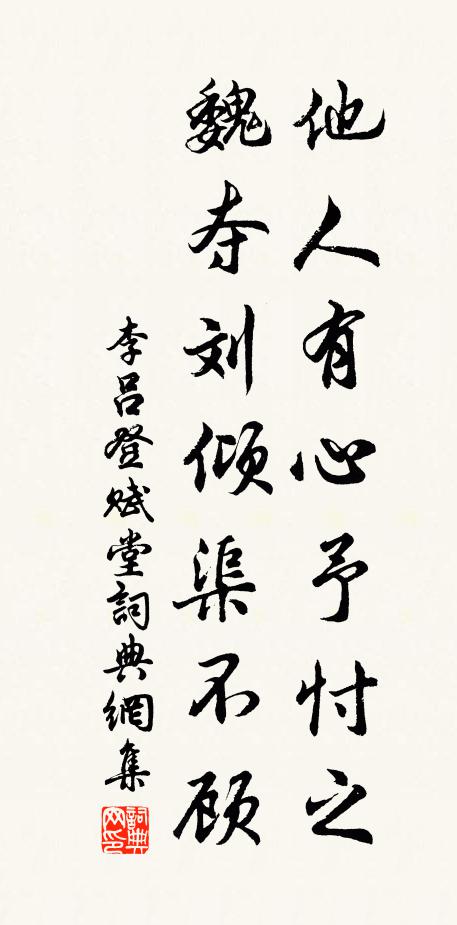 他人有心予忖之
魏夺刘倾渠不顾
李吕登赋堂詞典網集
詞典网印